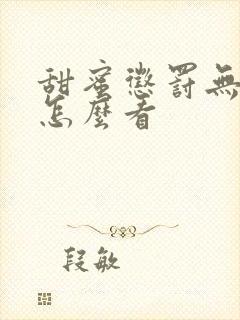 甜蜜懲罰無
怎麼看
段敏